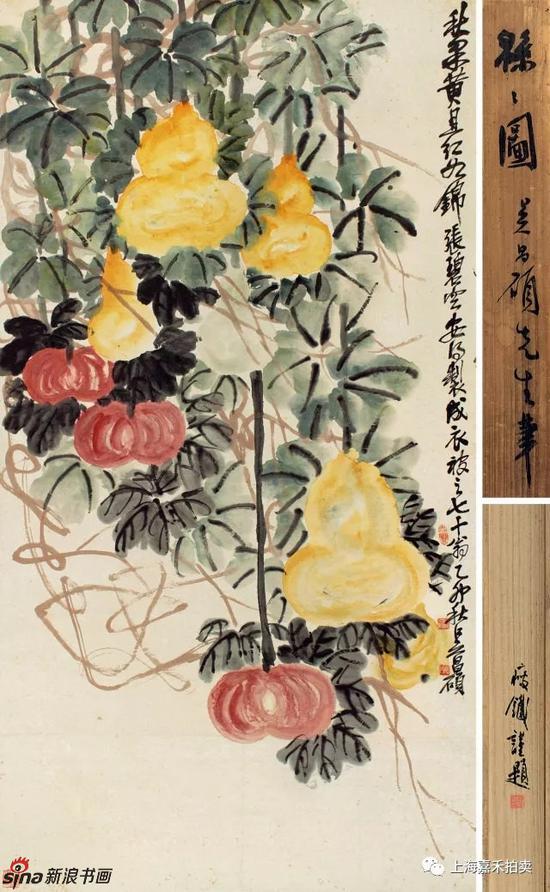 秋果黃且紅如錦張碧空安得製成衣被之七十翁乙卯秋吳昌碩
緜〻圖
吳昌碩先生筆
瘦鐵謹題
sina新浪书画
上海嘉禾拍卖